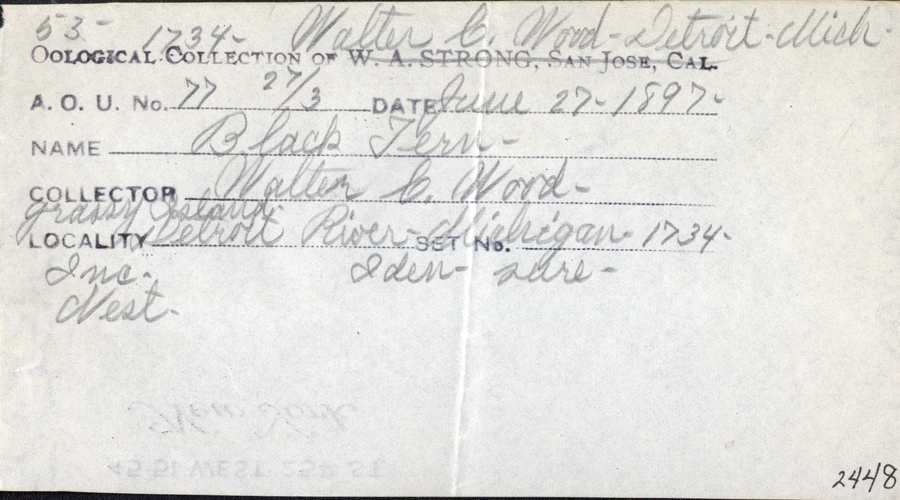 53- 1734- Walter C. Wood- Detroit- Mich.
OOLOGICAL COLLECTION OF W. A. STRONG, SAN JOSE, CAL.
A. O. U. No. 77 27/3 DATE June 27- 1897-
NAME Black Tern-
COLLECTOR Walter C. Wood-
Grassy Island
LOCALITY Detroit River- Michigan- SET No. 1734-
Inc- Iden- sure-
Nest-
New York
45-51 WEST 25TH ST
2448